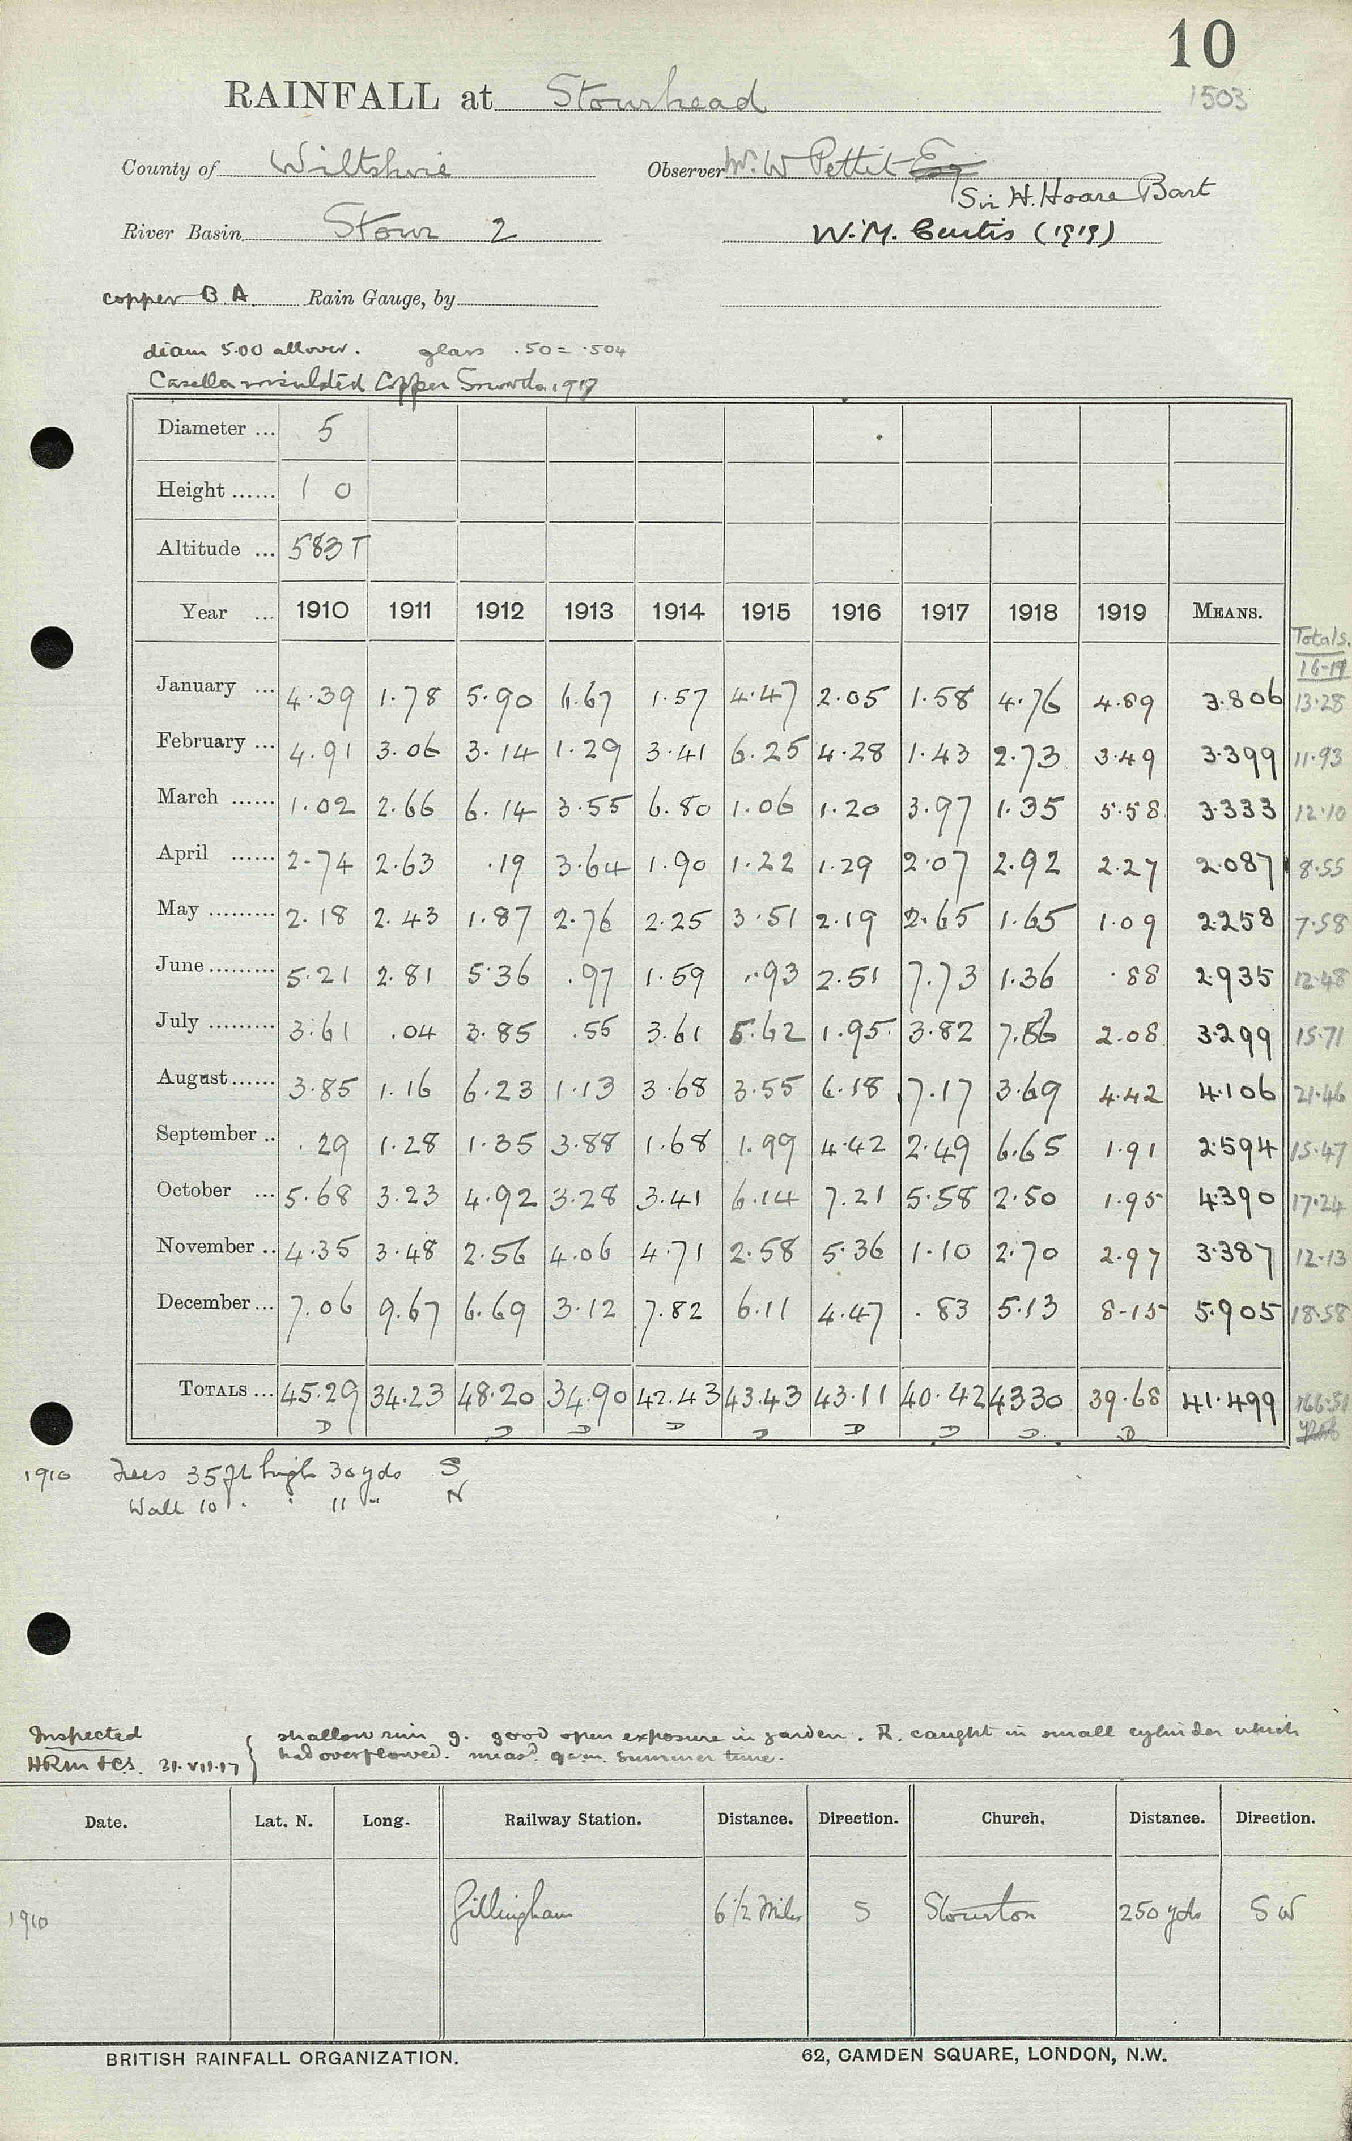 10
1503
RAINFALL at Stourhead
County of Wiltshire Observer W. W Pettit Esq
Sir H. Hoare Bart
River Basin Stour 2 W. M. Curtis (1919)
copper B. A. Rain Gauge, by
diam 5.00 all over. glass .50 = .504
Casella Copper Snowdon 1917
Diameter ... 5
Height ...... 1 0
Altitude ... 583 T
Year ... 1910 1911 1912 1913 1914 1915 1916 1917 1918 1919 MEANS. Totals. 16-19
January ... 4.39 1.78 5.90 6.67 1.57 4.47 2.05 1.58 4.76 4.89 3.806 13.28
February ... 4.91 3.06 3.14 1.29 3.41 6.25 4.28 1.43 2.73 3.49 3.399 11.93
March ...... 1.02 2.66 6.14 3.55 6.80 1.06 1.20 3.97 1.35 5.58 3.333 12.10
April ...... 2.74 2.63 .19 3.64 1.90 1.22 1.29 2.07 2.92 2.27 2.087 8.55
May ......... 2.18 2.43 1.87 2.76 2.25 3.51 2.19 2.65 1.65 1.09 2.258 7.58
June ......... 5.21 2.81 5.36 .97 1.59 .93 2.51 7.73 1.36 .88 2.935 12.48
July ......... 3.61 .04 3.85 .55 3.61 5.62 1.95 3.82 7.86 2.08 3.299 15.71
August ...... 3.85 1.16 6.23 1.13 3.68 3.55 6.18 7.17 3.69 4.42 4.106 21.46
September .. .29 1.28 1.35 3.88 1.68 1.99 4.42 2.49 6.65 1.91 2.594 15.47
October ... 5.68 3.23 4.92 3.28 3.41 6.14 7.21 5.58 2.50 1.95 4.390 17.24
November .. 4.35 3.48 2.56 4.06 4.71 2.58 5.36 1.10 2.70 2.97 3.387 12.13
December ... 7.06 9.67 6.69 3.12 7.82 6.11 4.47 .83 5.13 8.15 5.905 18.58
TOTALS ... 45.29 34.23 48.20 34.90 42.43 43.43 43.11 40.42 43.30 39.68 41.499 166.51
D D D D D D D D D
1910 Trees 35 ft high 30 yds S
Wall 10 " " 11 " N
Inspected shallow rim g. good open exposure in garden. R. caught in small cylinder which
HRM & CS. 31.VII.17 had overflowed. measd. 9 a.m. Summer time.
Date. Lat. N. Long. Railway Station. Distance. Direction. Church. Distance. Direction.
1910 Gillingham 6 1/2 Miles S Stourton 250 yds S W
BRITISH RAINFALL ORGANIZATION. 62, CAMDEN SQUARE, LONDON, N.W.